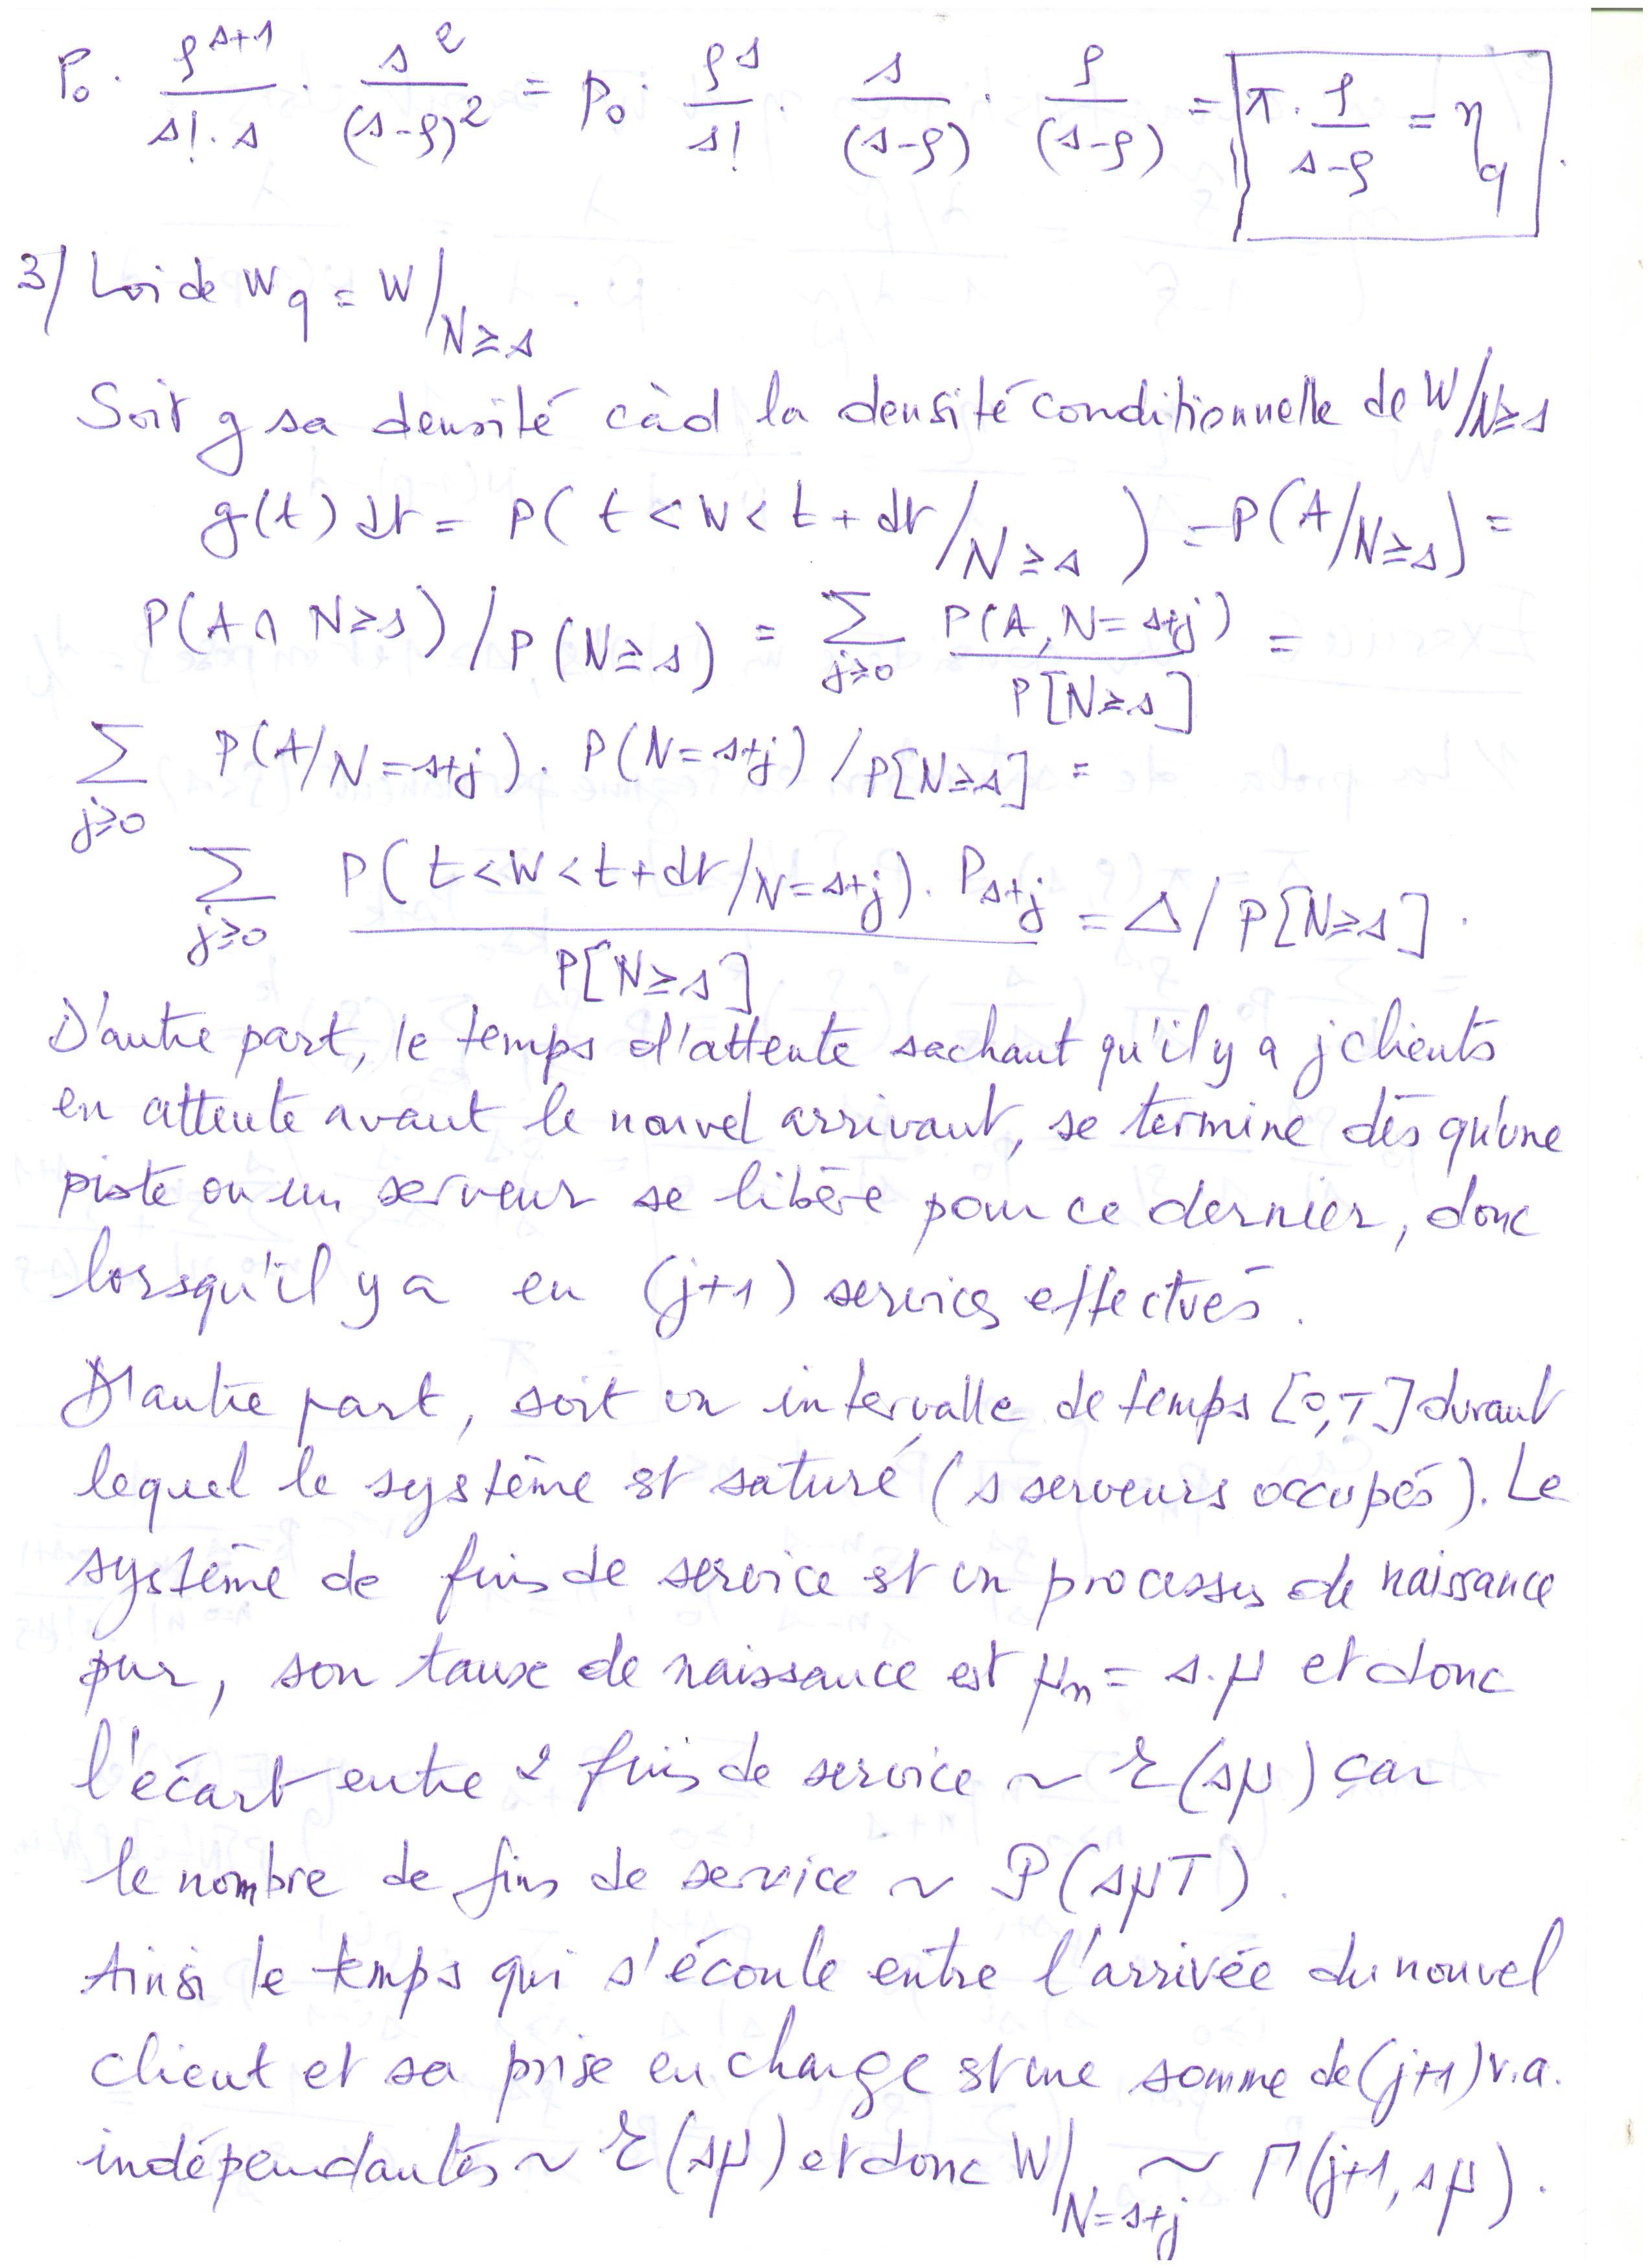 P₀ · ρ^(s+1) / (s!·s) · s² / (s-ρ)² = p₀ · ρ^s / s! · s / (s-ρ) · ρ / (s-ρ) = π · ρ / (s-ρ) = η_q .
3/ Loi de W_q = W/N≥s .
Soit g sa densité càd la densité conditionnelle de W/N≥s
g(t) dt = P( t < W < t + dt / N≥s ) = P(A/N≥s) =
P(A ∩ N≥s) / P(N≥s) = Σ_{j≥0} P(A, N=s+j) / P[N≥s] =
Σ_{j≥0} P(A/N=s+j) . P(N=s+j) / P[N≥s] =
Σ_{j≥0} P( t<W<t+dt / N=s+j) . P_{s+j} / P[N≥s] = Δ / P[N≥s] .
D'autre part, le temps d'attente sachant qu'il y a j clients
en attente avant le nouvel arrivant, se termine dès qu'une
piste ou un serveur se libère pour ce dernier, donc
lorsqu'il y a eu (j+1) services effectués .
D'autre part, soit un intervalle de temps [0,T] durant
lequel le système est saturé (s serveurs occupés). Le
système de fins de service est un processus de naissance
pur, son taux de naissance est μ_n = s.μ et donc
l'écart entre 2 fins de service ~ ℰ(sμ) car
le nombre de fins de service ~ P(sμT) .
Ainsi le temps qui s'écoule entre l'arrivée du nouvel
client et sa prise en charge est une somme de (j+1) v.a.
indépendantes ~ ℰ(sμ) et donc W/N=s+j ~ Γ(j+1, sμ) .